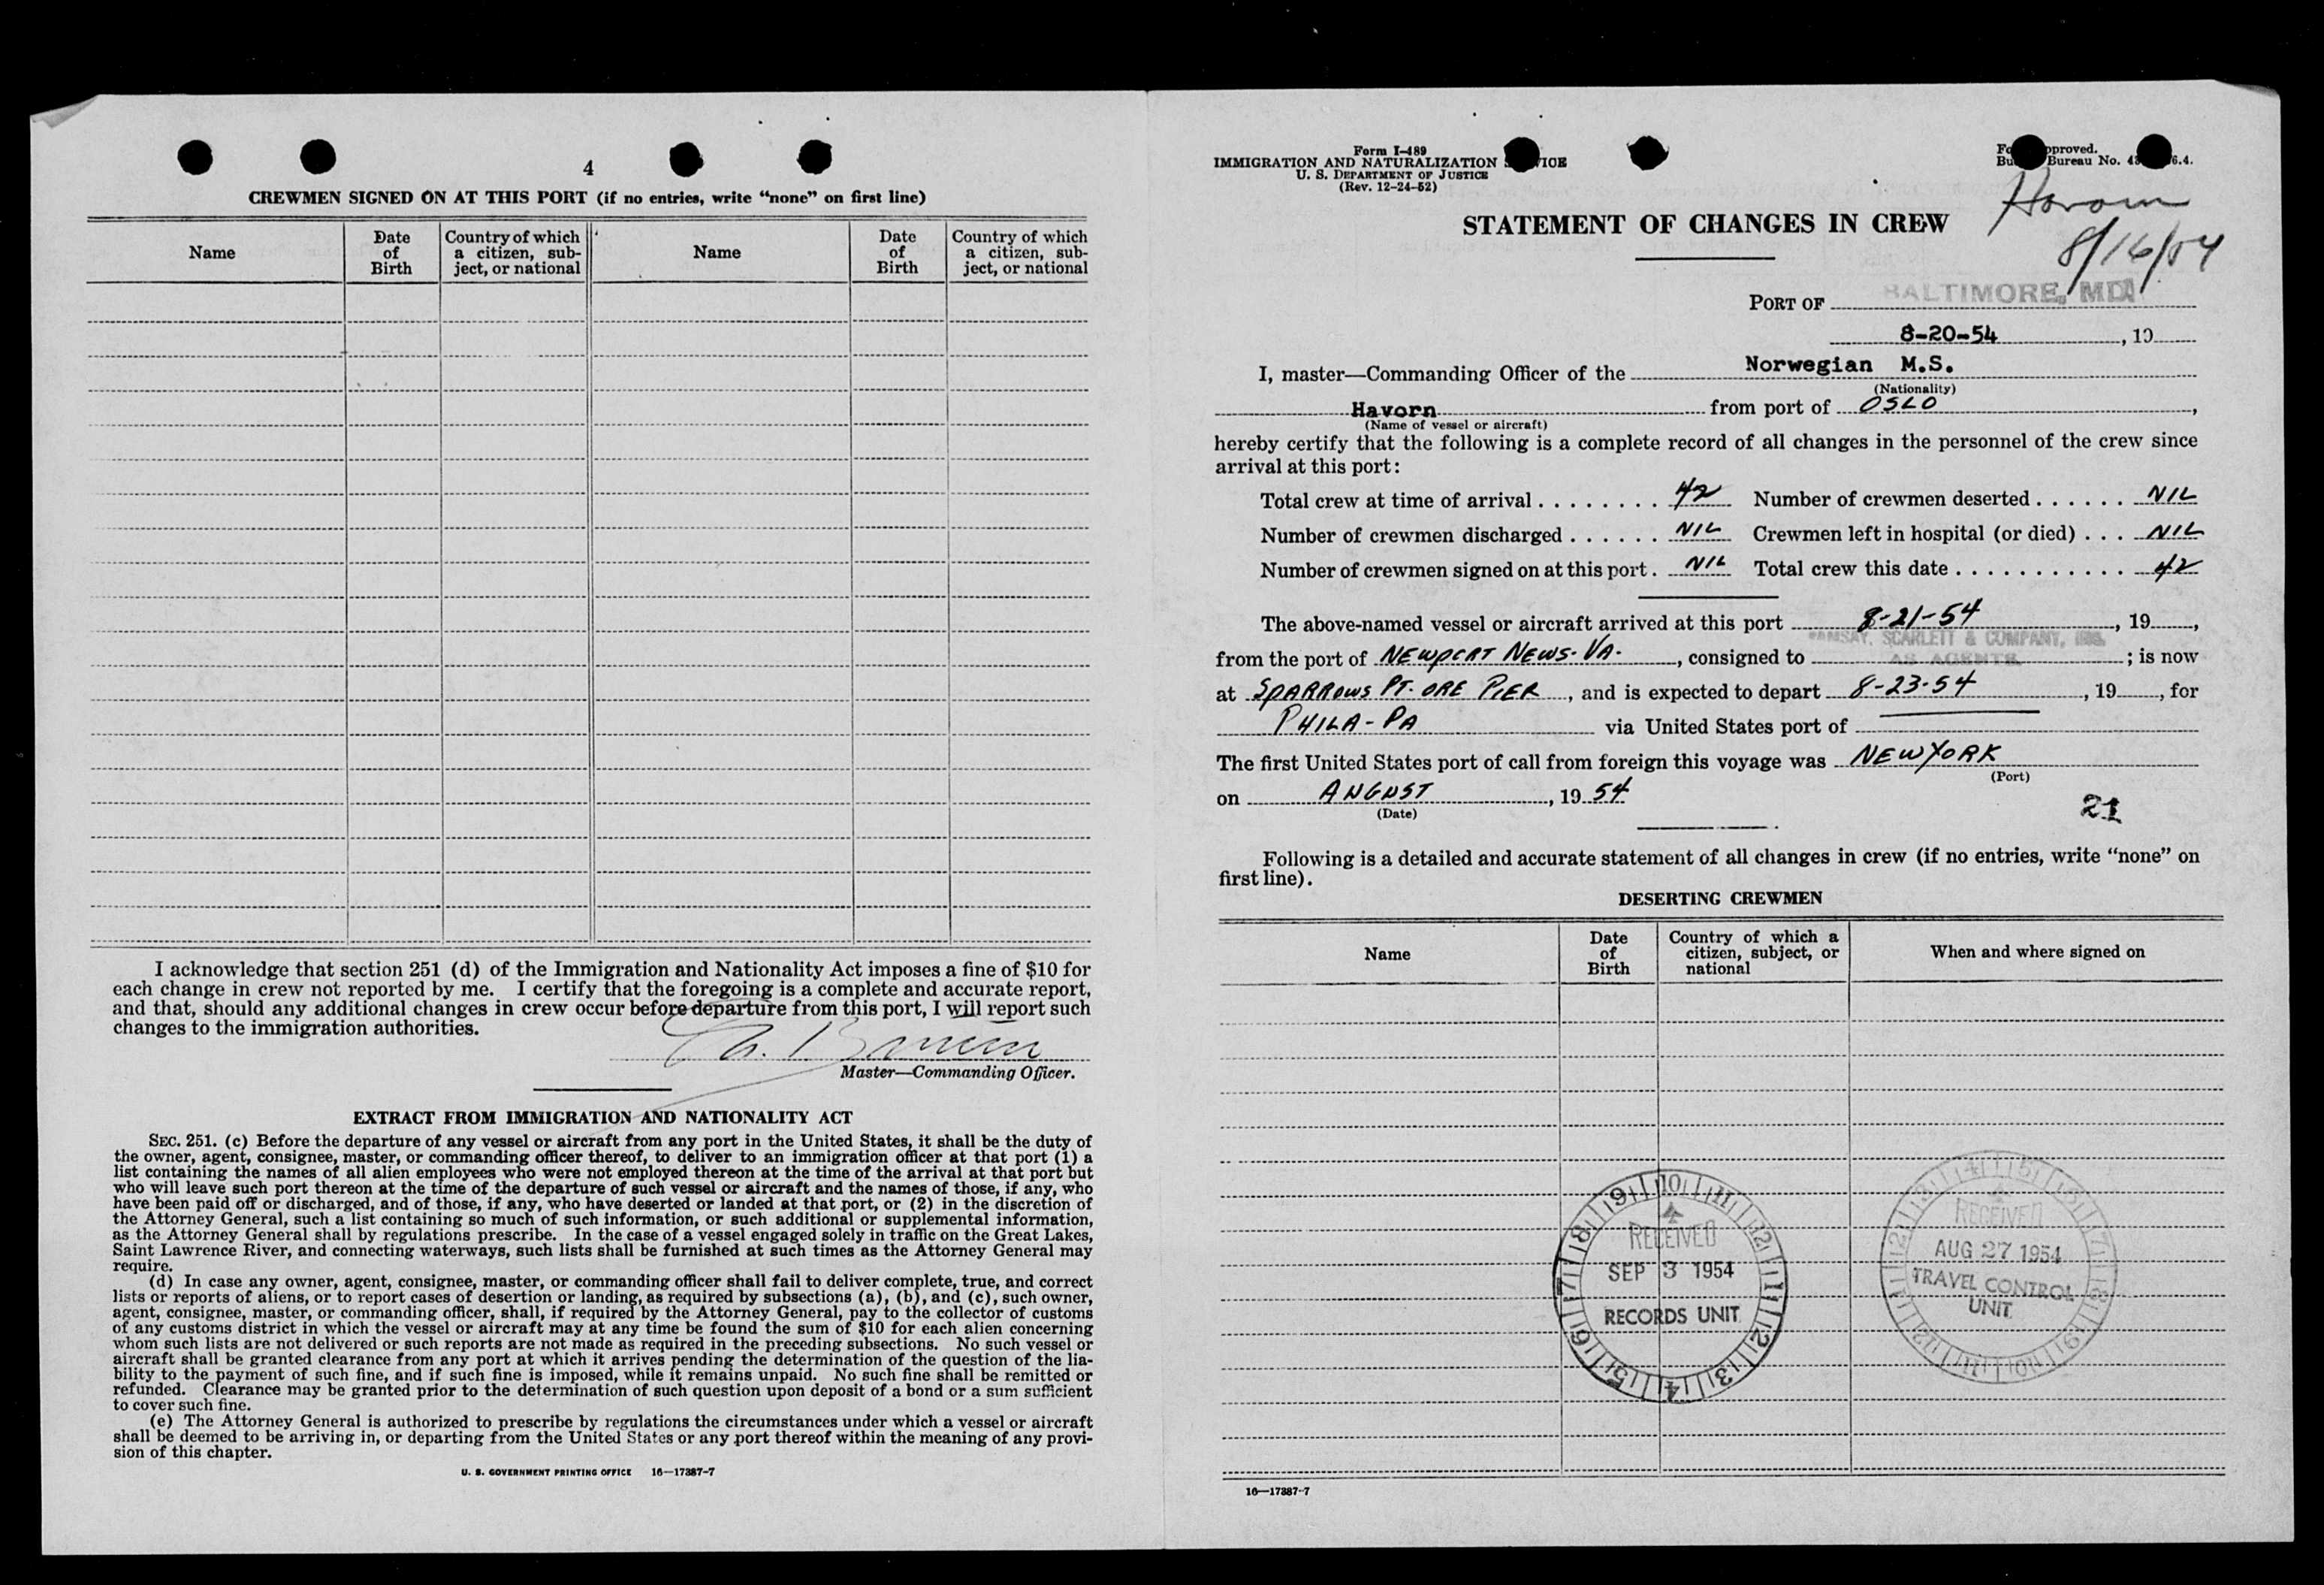 4
CREWMEN SIGNED ON AT THIS PORT (if no entries, write “none” on first line)
Name
Date of Birth
Country of which a citizen, sub-ject, or national
Name
Date of Birth
Country of which a citizen, sub-ject, or national
I acknowledge that section 251 (d) of the Immigration and Nationality Act imposes a fine of $10 for
each change in crew not reported by me. I certify that the foregoing is a complete and accurate report,
and that, should any additional changes in crew occur before departure from this port, I will report such
changes to the immigration authorities.
Master—Commanding Officer.
EXTRACT FROM IMMIGRATION AND NATIONALITY ACT
SEC. 251. (c) Before the departure of any vessel or aircraft from any port in the United States, it shall be the duty of
the owner, agent, consignee, master, or commanding officer thereof, to deliver to an immigration officer at that port (1) a
list containing the names of all alien employees who were not employed thereon at the time of the arrival at that port but
who will leave such port thereon at the time of the departure of such vessel or aircraft and the names of those, if any, who
have been paid off or discharged, and of those, if any, who have deserted or landed at that port, or (2) in the discretion of
the Attorney General, such a list containing so much of such information, or such additional or supplemental information,
as the Attorney General shall by regulations prescribe. In the case of a vessel engaged solely in traffic on the Great Lakes,
Saint Lawrence River, and connecting waterways, such lists shall be furnished at such times as the Attorney General may
require.
(d) In case any owner, agent, consignee, master, or commanding officer shall fail to deliver complete, true, and correct
lists or reports of aliens, or to report cases of desertion or landing, as required by subsections (a), (b), and (c), such owner,
agent, consignee, master, or commanding officer, shall, if required by the Attorney General, pay to the collector of customs
of any customs district in which the vessel or aircraft may at any time be found the sum of $10 for each alien concerning
whom such lists are not delivered or such reports are not made as required in the preceding subsections. No such vessel or
aircraft shall be granted clearance from any port at which it arrives pending the determination of the question of the lia-
bility to the payment of such fine, and if such fine is imposed, while it remains unpaid. No such fine shall be remitted or
refunded. Clearance may be granted prior to the determination of such question upon deposit of a bond or a sum sufficient
to cover such fine.
(e) The Attorney General is authorized to prescribe by regulations the circumstances under which a vessel or aircraft
shall be deemed to be arriving in, or departing from the United States or any port thereof within the meaning of any provi-
sion of this chapter.
U. S. GOVERNMENT PRINTING OFFICE 16—17387-7
Form I-489
IMMIGRATION AND NATURALIZATION
U. S. DEPARTMENT OF JUSTICE
(Rev. 12-24-52)
Bureau No.
8/16/54
STATEMENT OF CHANGES IN CREW
PORT OF BALTIMORE, MD.
8-20-54, 19
I, master—Commanding Officer of the Norwegian M.S.
(Nationality)
Havorn from port of OSLO,
(Name of vessel or aircraft)
hereby certify that the following is a complete record of all changes in the personnel of the crew since
arrival at this port:
Total crew at time of arrival 42 Number of crewmen deserted NIL
Number of crewmen discharged NIL Crewmen left in hospital (or died) NIL
Number of crewmen signed on at this port NIL Total crew this date 42
The above-named vessel or aircraft arrived at this port 8-21-54, 19,
RAMSAY, SCARLETT & COMPANY, INC.
AS AGENTS
from the port of NEWPORT NEWS-VA., consigned to ; is now
at SPARROWS PT. ORE PIER, and is expected to depart 8-23-54, 19, for
PHILA-PA via United States port of
The first United States port of call from foreign this voyage was NEW YORK
(Port)
on AUGUST, 1954
(Date)
21
Following is a detailed and accurate statement of all changes in crew (if no entries, write “none” on
first line).
DESERTING CREWMEN
Name
Date of Birth
Country of which a citizen, subject, or national
When and where signed on
RECEIVED
SEP 3 1954
RECORDS UNIT
RECEIVED
AUG 27 1954
TRAVEL CONTROL
UNIT
16—17387-7